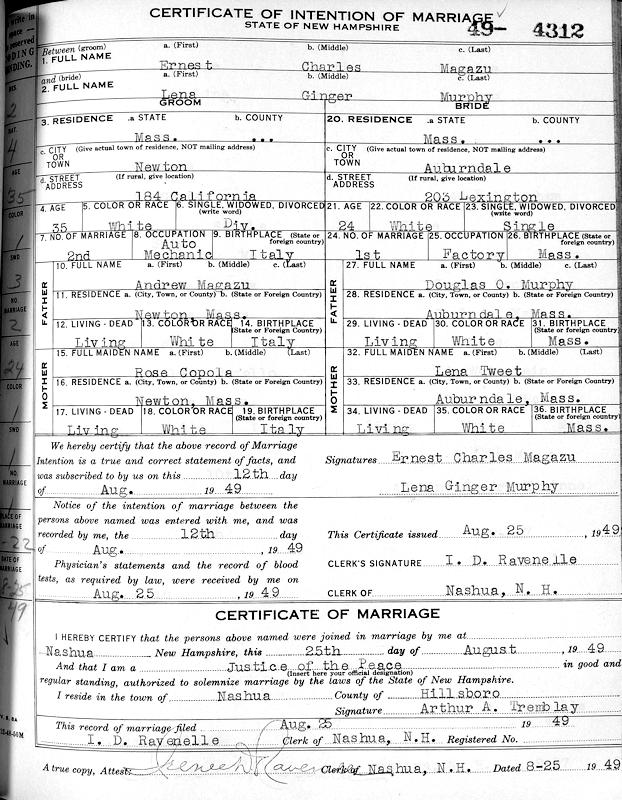 CERTIFICATE OF INTENTION OF MARRIAGE
STATE OF NEW HAMPSHIRE
49- 4312
Between (groom) a. (First) b. (Middle) c. (Last)
1. FULL NAME Ernest Charles Magazu
and (bride) a. (First) b. (Middle) c. (Last)
2. FULL NAME Lena Ginger Murphy
GROOM BRIDE
3. RESIDENCE .a STATE b. COUNTY 20. RESIDENCE .a STATE b. COUNTY
Mass. ... Mass. ...
c. CITY OR TOWN (Give actual town of residence, NOT mailing address) c. CITY OR TOWN (Give actual town of residence, NOT mailing address)
Newton Auburndale
d. STREET ADDRESS (If rural, give location) d. STREET ADDRESS (If rural, give location)
184 California 203 Lexington
4. AGE 5. COLOR OR RACE 6. SINGLE, WIDOWED, DIVORCED (write word) 21. AGE 22. COLOR OR RACE 23. SINGLE, WIDOWED, DIVORCED (write word)
35 White Div. 24 White Single
7. NO. OF MARRIAGE 8. OCCUPATION 9. BIRTHPLACE (State or foreign country) 24. NO. OF MARRIAGE 25. OCCUPATION 26. BIRTHPLACE (State or foreign country)
2nd Auto Mechanic Italy 1st Factory Mass.
FATHER 10. FULL NAME a. (First) b. (Middle) c. (Last) FATHER 27. FULL NAME a. (First) b. (Middle) c. (Last)
Andrew Magazu Douglas O. Murphy
11. RESIDENCE a. (City, Town, or County) b. (State or Foreign Country) 28. RESIDENCE a. (City, Town, or County) b. (State or Foreign Country)
Newton, Mass. Auburndale, Mass.
12. LIVING - DEAD 13. COLOR OR RACE 14. BIRTHPLACE (State or Foreign Country) 29. LIVING - DEAD 30. COLOR OR RACE 31. BIRTHPLACE (State or Foreign Country)
Living White Italy Living White Mass.
MOTHER 15. FULL MAIDEN NAME a. (First) b. (Middle) (Last) MOTHER 32. FULL MAIDEN NAME a. (First) b. (Middle) (Last)
Rose Copola Lena Tweet
16. RESIDENCE a. (City, Town, or County) b. (State or Foreign Country) 33. RESIDENCE a. (City, Town, or County) b. (State or Foreign Country)
Newton, Mass. Auburndale, Mass.
17. LIVING - DEAD 18. COLOR OR RACE 19. BIRTHPLACE (State or Foreign Country) 34. LIVING - DEAD 35. COLOR OR RACE 36. BIRTHPLACE (State or Foreign Country)
Living White Italy Living White Mass.
We hereby certify that the above record of Marriage
Intention is a true and correct statement of facts, and
was subscribed to by us on this 12th day
of Aug. 19 49
Signatures Ernest Charles Magazu
Lena Ginger Murphy
Notice of the intention of marriage between the
persons above named was entered with me, and was
recorded by me, the 12th day
of Aug. , 19 49
This Certificate issued Aug. 25 , 19 49
Physician's statements and the record of blood
tests, as required by law, were received by me on
Aug. 25 , 19 49
CLERK'S SIGNATURE I. D. Ravenelle
CLERK OF Nashua, N. H.
CERTIFICATE OF MARRIAGE
I HEREBY CERTIFY that the persons above named were joined in marriage by me at
Nashua New Hampshire, this 25th day of August , 19 49
And that I am a Justice of the Peace in good and
(Insert here your official designation)
regular standing, authorized to solemnize marriage by the laws of the State of New Hampshire.
I reside in the town of Nashua County of Hillsboro
Signature Arthur A. Tremblay
This record of marriage filed Aug. 25 19 49
I. D. Ravenelle Clerk of Nashua, N.H. Registered No.
A true copy, Attest: Clerk of Nashua, N.H. Dated 8-25 19 49